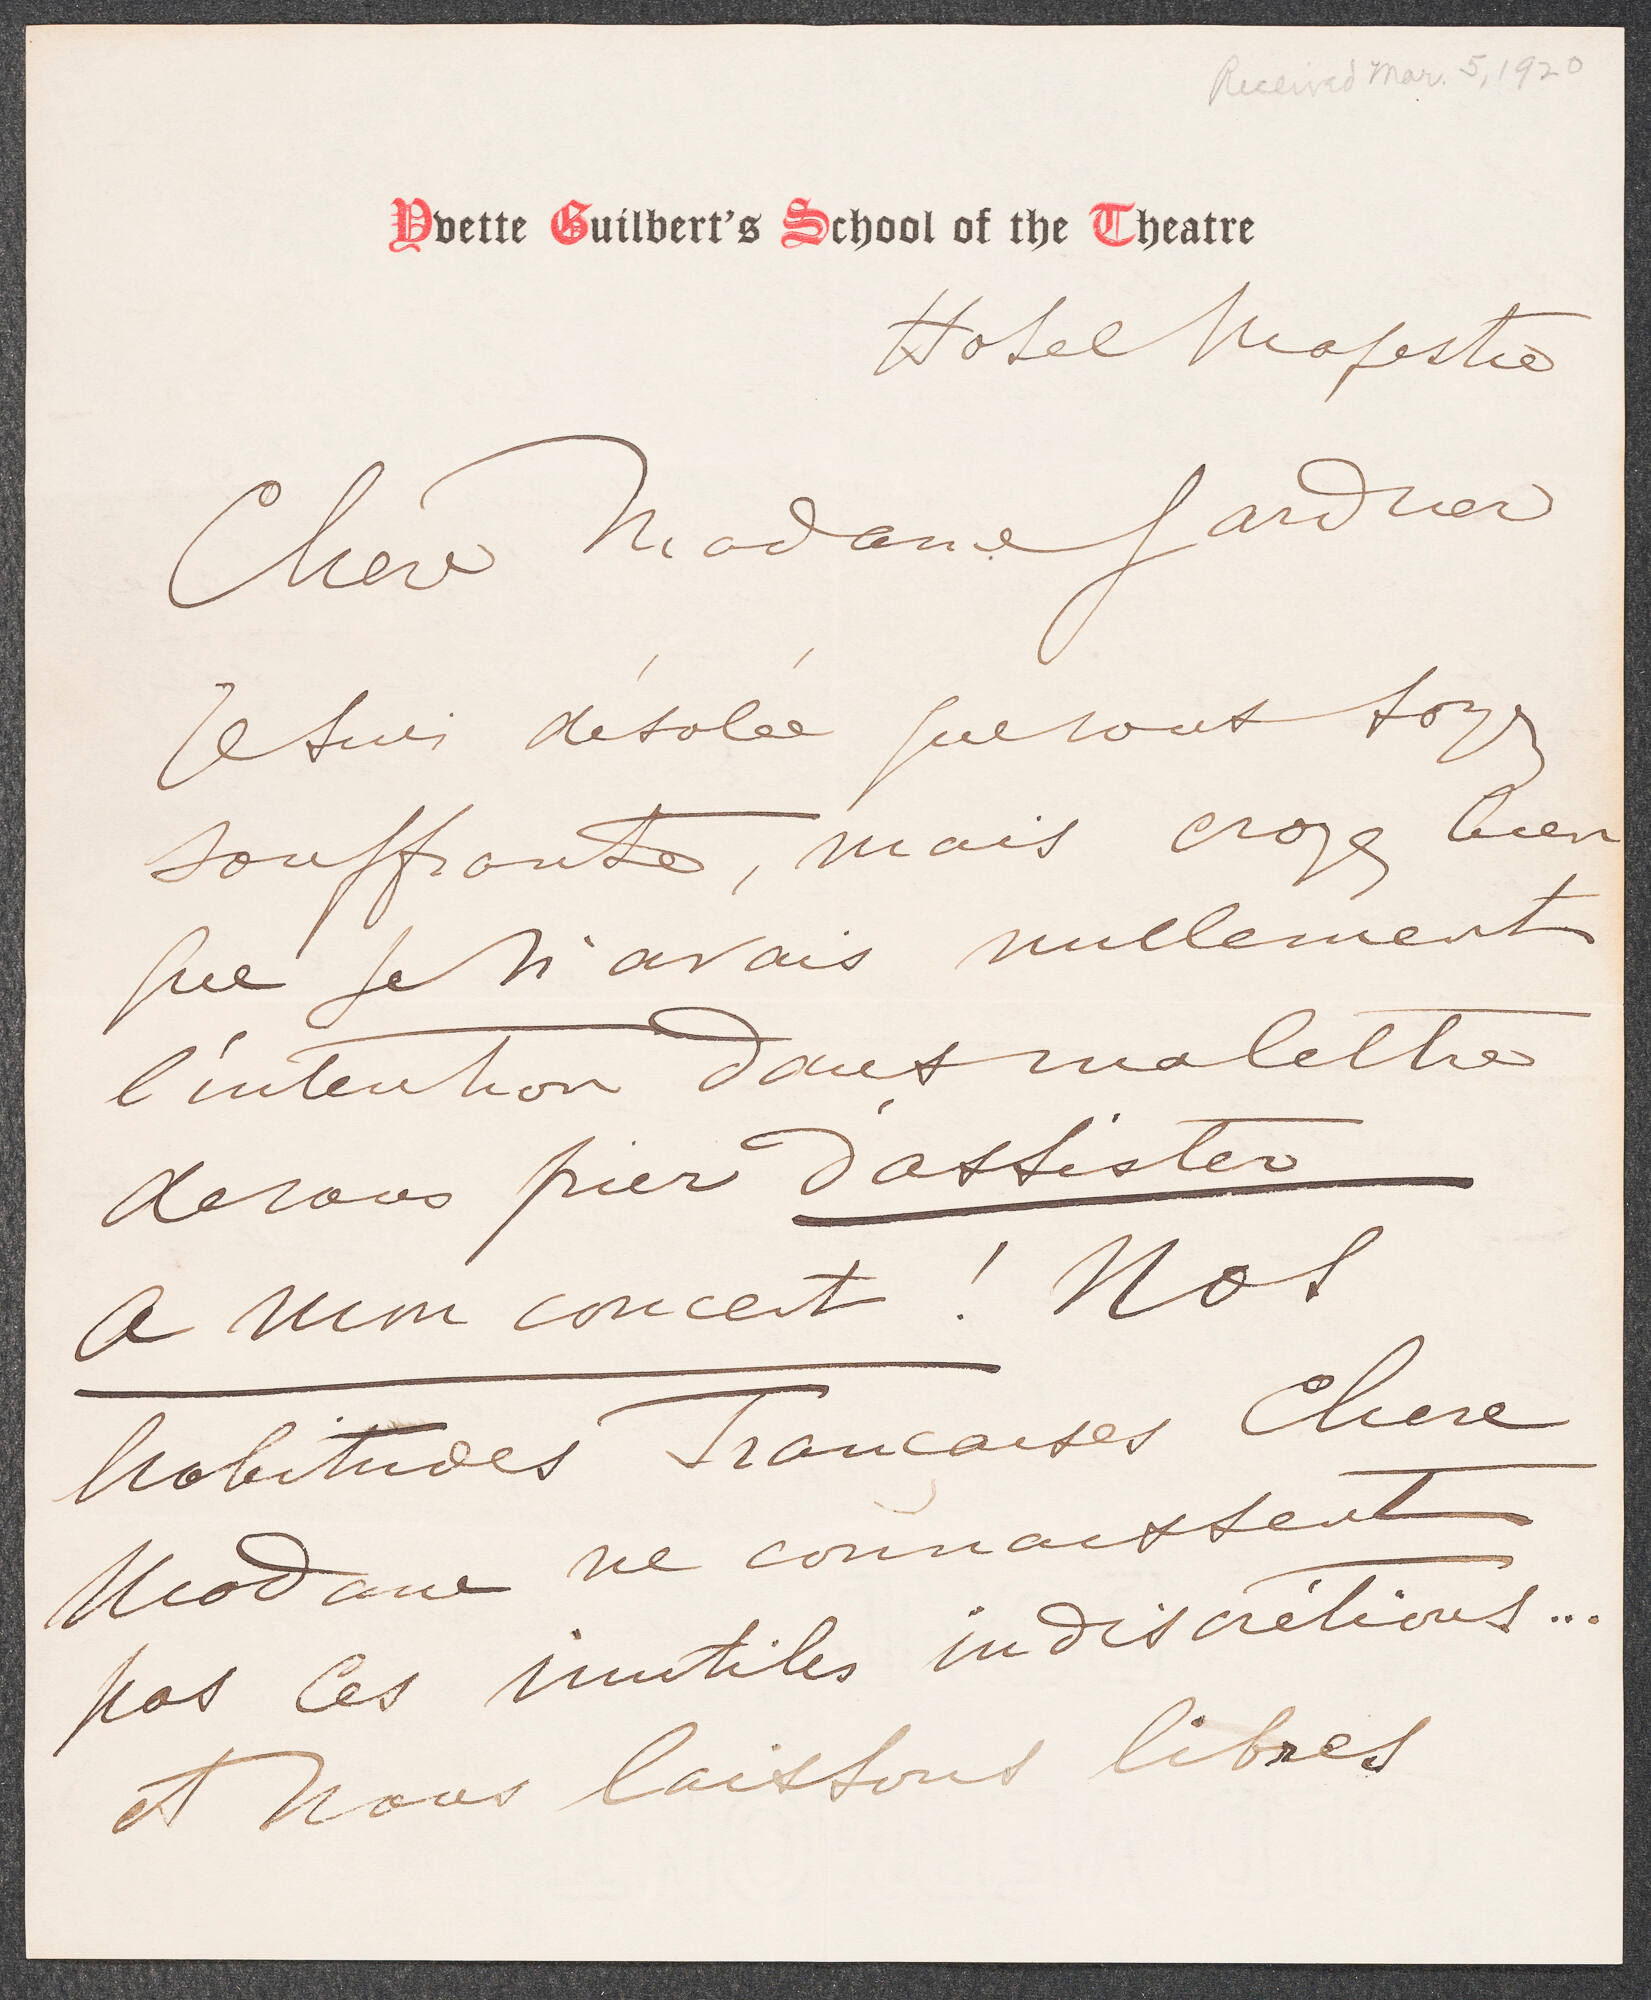 Received Mar. 5, 1920
Yvette Guilbert's School of the Theatre
Hotel Majestic
Chere Madame Gardner
Je suis désolée que vous soyez
souffrante, mais croyez bien
que je n'avais nullement
l'intention dans ma lettre
de vous prier d'assister
a mon concert ! Nos
habitudes Françaises Chere
Madame ne connaissent
pas ces inutiles indiscrétions...
et nous laissons libres